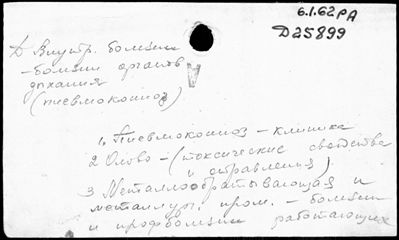 6.1.62РА
D25899
Д Внутр. болезни
- болезни органов
дыхания
(пневмокониоз)
1. Пневмокониоз - клиника
2 Олово - (токсические свойства
и отравления)
3 Металлообрабатывающая и
металлург. пром. - болезни
и профболезни работающих